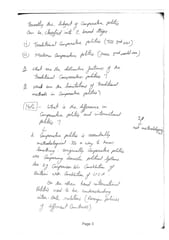 Broadly the Subject of Comparative politics
Can be Classified into 2 broad stages
(i) Traditional Comparative politics (Till 2nd war)
(ii) Modern Comparative politics (since 2nd world war)
What are the distinctive features of the
Traditional Comparative politics?
What are the limitations of Traditional
methods in Comparative politics?
Note: What is the difference in
Comparative politics and international
politics?
Comparative politics is essentially
methodological It's a way it knows
Something originally Comparative politics
was Comparing domestic political Systems
like eg Comparison the Constitution of
Britain with Constitution of U.S.A
On the other hand international
politics used to be understanding
inter state politics (foreign policies
of different Countries)
IP
not methodology
Page 3